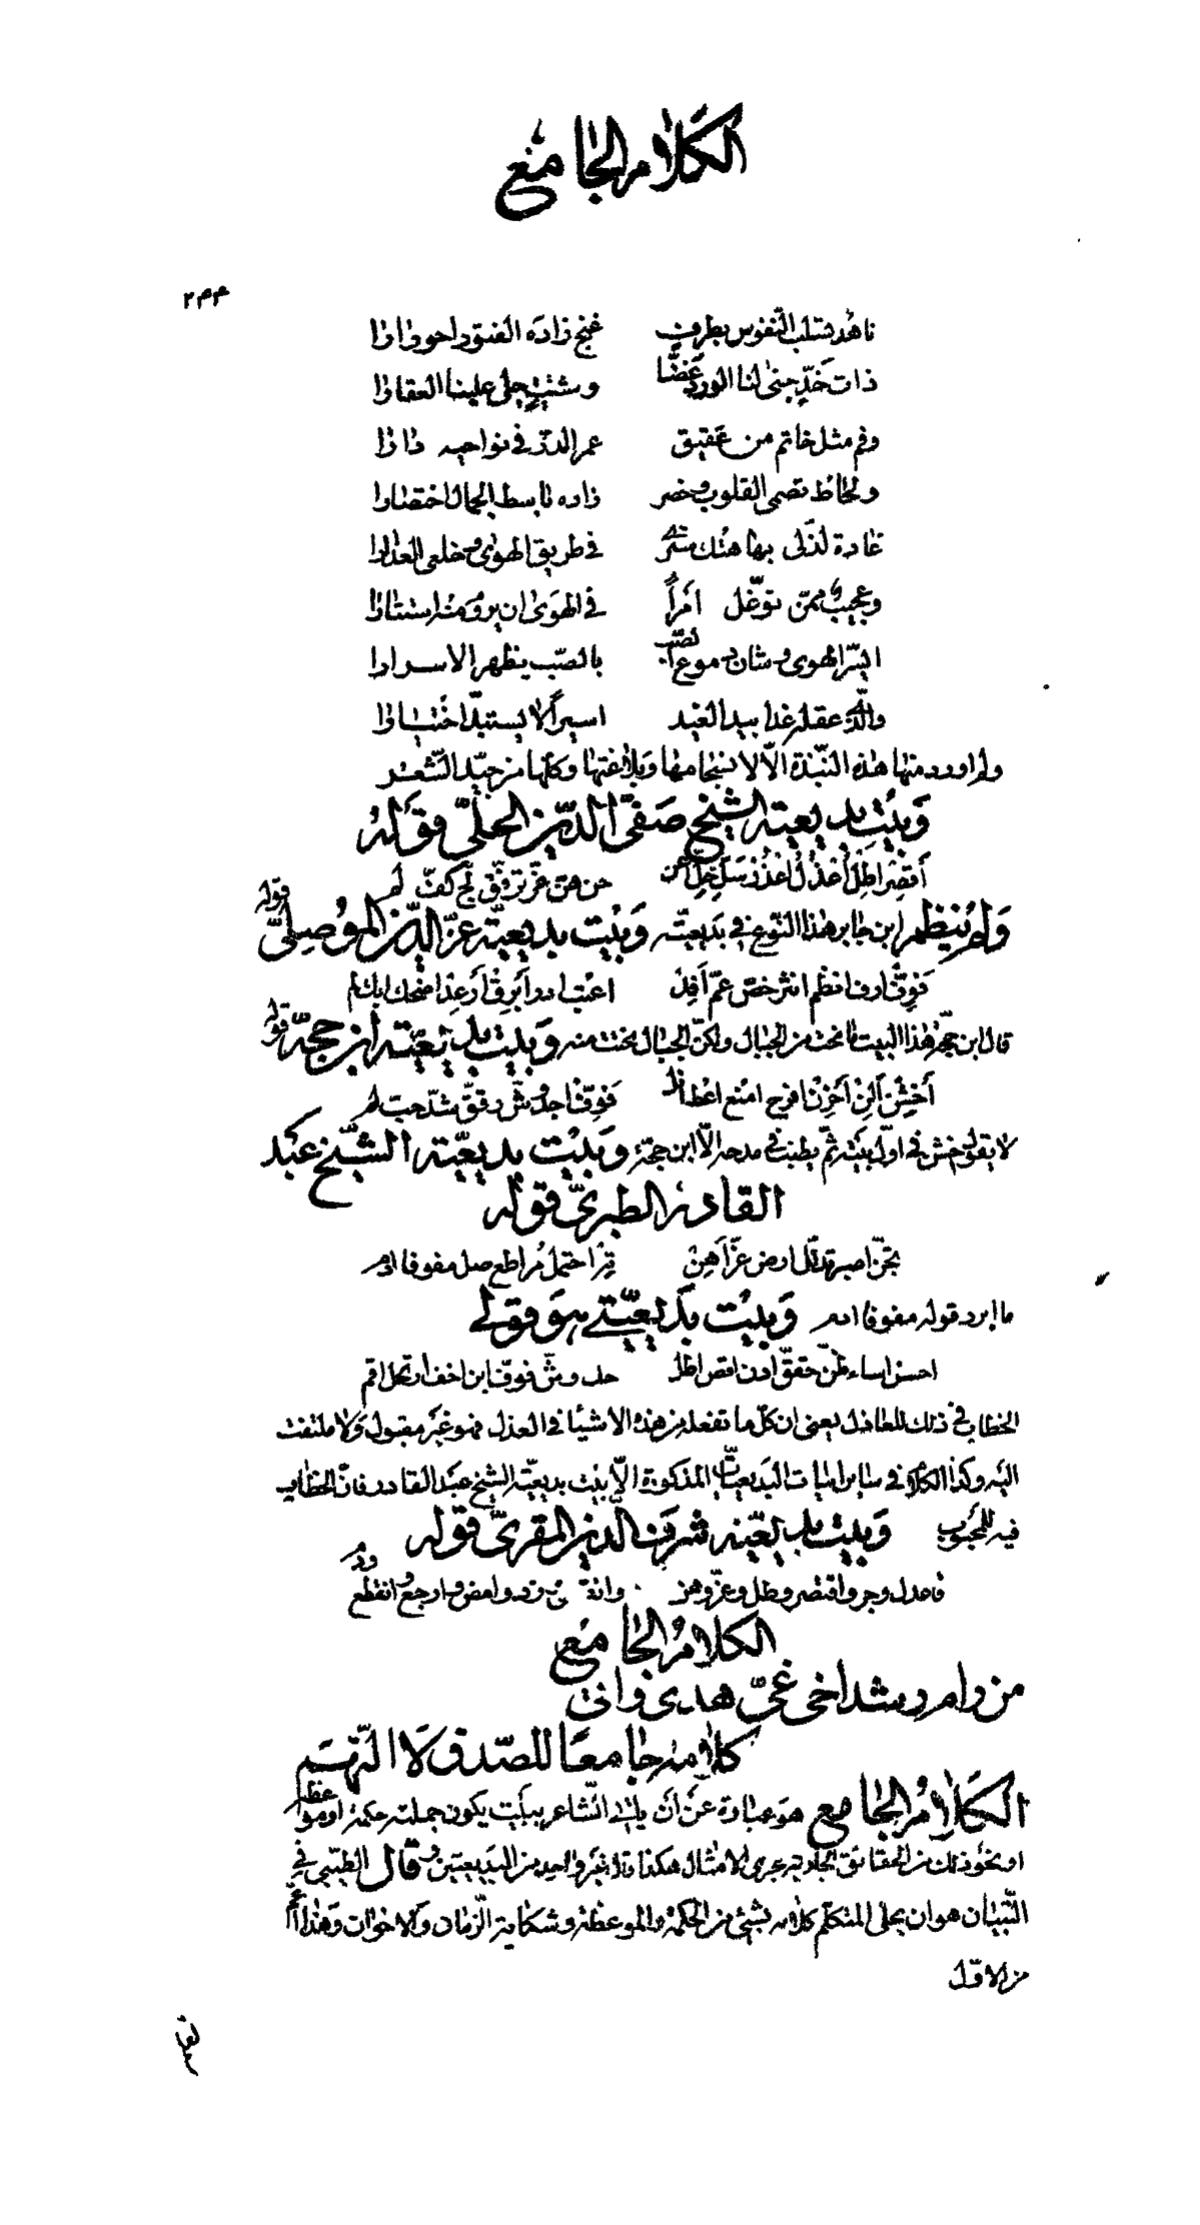 الكلام الجامع
٢٣٣
ناهد تسلب النفوس بطرف غنج زاده الفتور احورارا
ذات خدّ جنى لنا الورد غضّا وشتيت جلى علينا العقارا
وفم مثل خاتم من عقيق عمر الدرّ في نواحيه دارا
ولحاظ تصمى القلوب وخصر زاده باسط الجمال اختصارا
غادة لذّلى بها هتك سترى في طريق الهوى وخلعى العذارا
وعجيب ممّن توغّل امراً في الهوى ان يروم منه استتارا
ايسرّ الهوى وشان دموع الصبّ بالصبّ يظهر الاسرارا
والّذى عقله غدا بيد الغيد اسيراً لا يستبدّ اختيارا
ولم اورد منها هذه النّبذة الّا لانسجامها وبلاغتها وكلّها من جيّد الشّعر
وبيت بديعيته الشيخ صفىّ الدّين الحلّى قوله
أقصر اطل اعذل اعذر سل خلّ اعن خن هنّ عزّ ترفّق لجّ كفّ لم
ولم ينظم ابن جابر هذا النّوع في بديعيّته وبيت بديعيّة عزّ الدّين الموصلىّ قوله
فوّف انظم انثر خصّ عمّ افد اعتب ابرق ارعد اضحك ابك لم
قال ابن حجّة هذا البيت ما نحت من الجبال ولكنّ الجبال نحتت منه وبيت بديعيّة ابن حجّة قوله
أخشن ألن أحزن افرح امنع اعط فوّف اجد وشّ رقّق شدّ حبّ لم
لا يقول خشن في اوّل بيته ثمّ يطنب في مدحه الّا ابن حجّة وبيت بديعيّة الشيخ عبد
القادر الطبرىّ قوله
تجنّ اصبر تدلّل ارض عزّ أهن احتمل مر اطع صل مفوفا ادم
ما ابرد قوله مفوفا ادم وبيت بديعيّتى هو قولى
احسن اساء ظنّ حقّق ادن اقص اطل وشّ فوّف ابن اخف ارتحل اقم
الخطاب في ذلك للعاذل يعنى ان كلّ ما تفعله من هذه الاشيا في العذل فهو غير مقبول ولا ملتفت
اليه وكذا الكلام في ساير ابيات البديعيّات المذكورة الّا بيت بديعيّة الشيخ عبد القادر فانّ الخطاب
فيه للمحبوب وبيت بديعيّة شرف الدّين المقرىّ قوله
فاعدل وجر واقتصر وطل وعزّ وهن وزد وامض وارجع وانقطع ودم
الكلام الجامع
من رام رشد اخى غىّ هدى واتى
كلامه جامعا للصّدق لا التّهم
الكلام الجامع هو عبارة عن أن يأتى الشّاعر ببيت يكون جملته حكمة او موعظة
او نحو ذلك من الحقائق الجارية مجرى الامثال هكذا قال غير واحد من البديعيّين وقال الطّيبى في
التّبيان هو ان يحلى المتكلّم كلامه بشئ من الحكمة والموعظة وشكاية الزّمان والاخوان وهذا أعمّ
من الاوّل